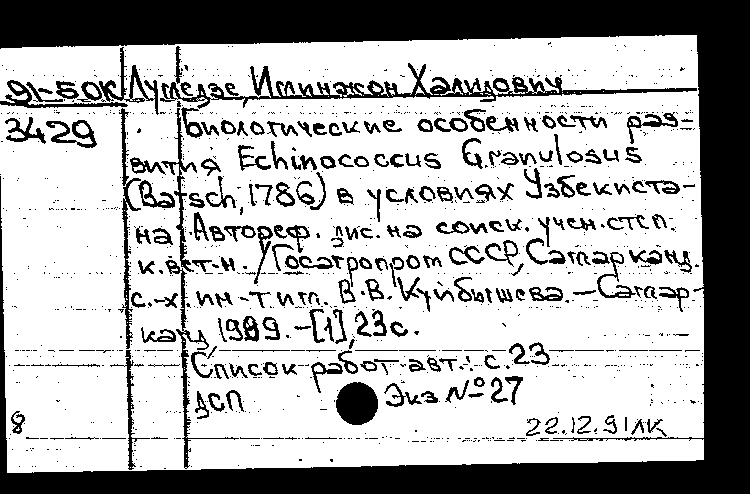 91-50К Лумедзе, Иминжон Халидович
3429 Биологические особенности раз-
вития Echinococcus Granulosus
(Batsch, 1786) в условиях Узбекиста-
на: Автореф. дис. на соиск. учен. степ.
к. вет. н. / Госагропром СССР, Самарканд.
с.-х. ин-т им. В.В. Куйбышева. - Самар-
канд, 1989. - [1], 23 с.
Список работ авт.: с. 23
ДСП Экз № 27
8 22.12.91 ЛК